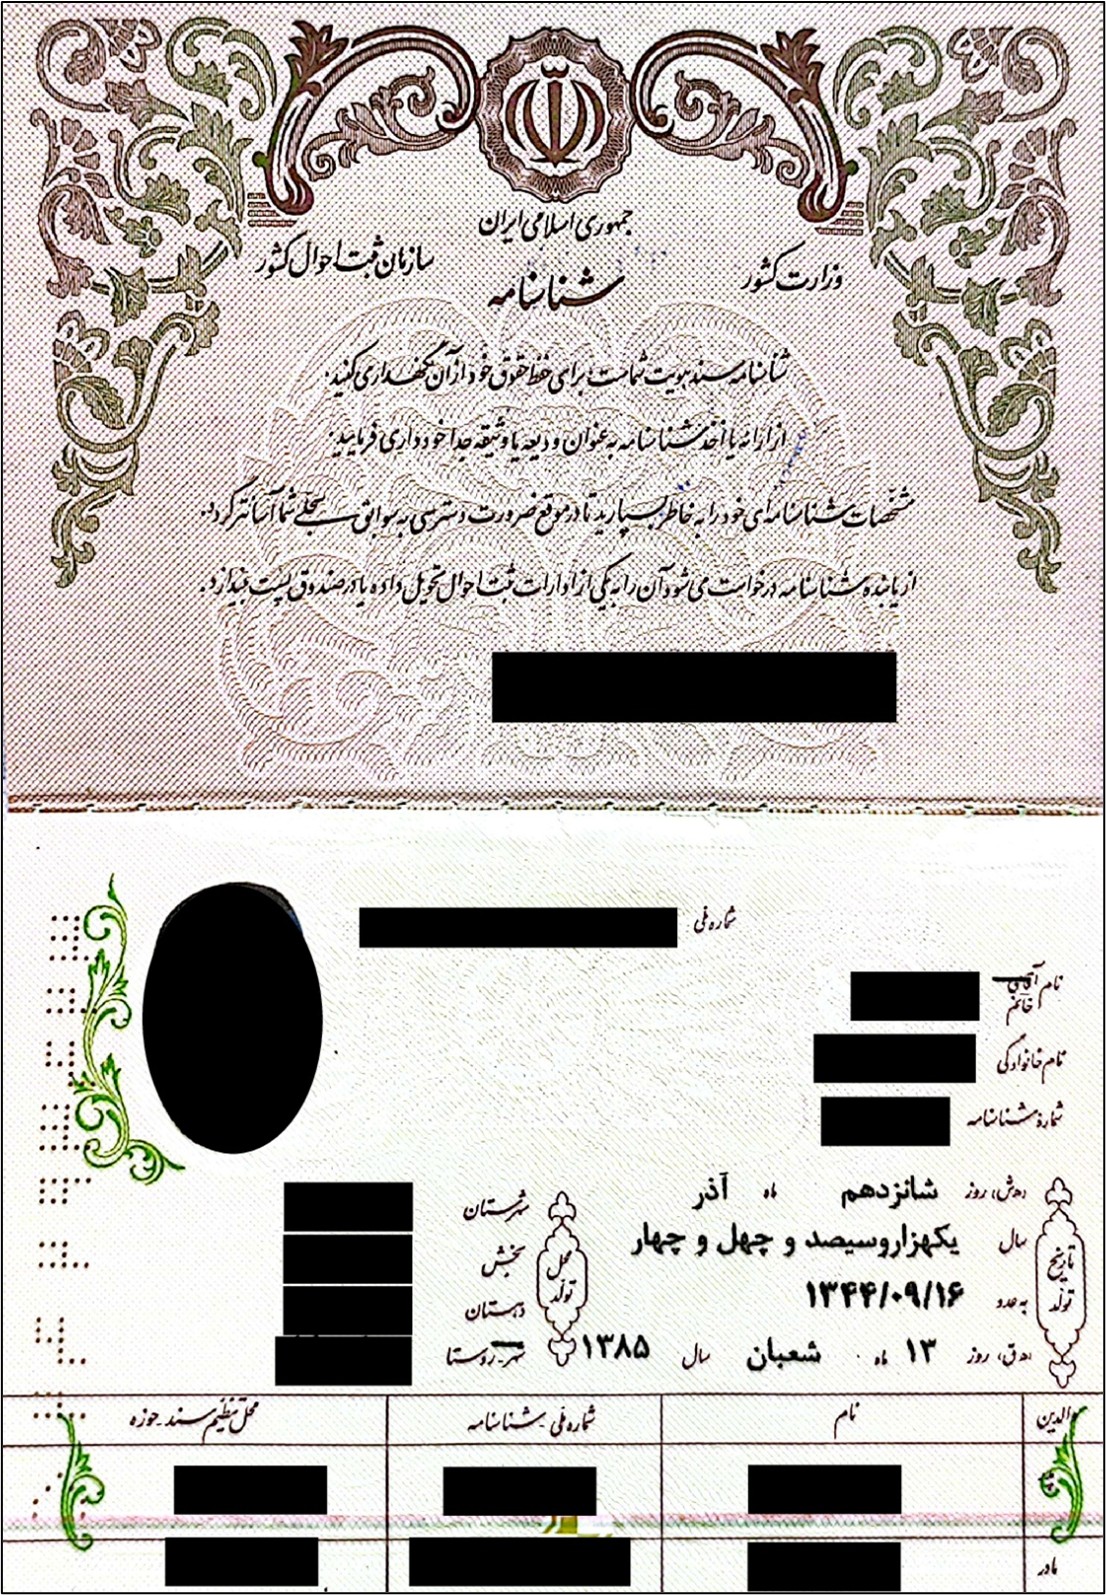 جمهوری اسلامی ایران
وزارت کشور
سازمان ثبت احوال کشور
شناسنامه
شناسنامه سند هویت شماست؛ برای حفظ حقوق خود از آن نگهداری کنید.
از ارائه یا اخذ شناسنامه به عنوان ودیعه یا وثیقه جداً خودداری فرمایید.
مشخصات شناسنامه‌ای خود را به خاطر بسپارید تا در موقع ضرورت دسترسی به سوابق سجلی شما آسانتر گردد.
از یابنده شناسنامه درخواست می‌شود آن را به یکی از ادارات ثبت احوال تحویل داده یا در صندوق پست بیندازد.
شماره ملی
نام آقای
خانم
نام خانوادگی
شمارهٔ شناسنامه
تاریخ تولد
(ه.ش) روز شانزدهم ماه آذر
سال یکهزاروسیصد و چهل و چهار
به عدد ۱۳۴۴/۰۹/۱۶
(ه.ق) روز ۱۳ ماه شعبان سال ۱۳۸۵
محل تولد
شهرستان
بخش
دهستان
شهر-روستا
والدین نام شماره ملی-شناسنامه محل تنظیم سند-حوزه
پدر
مادر